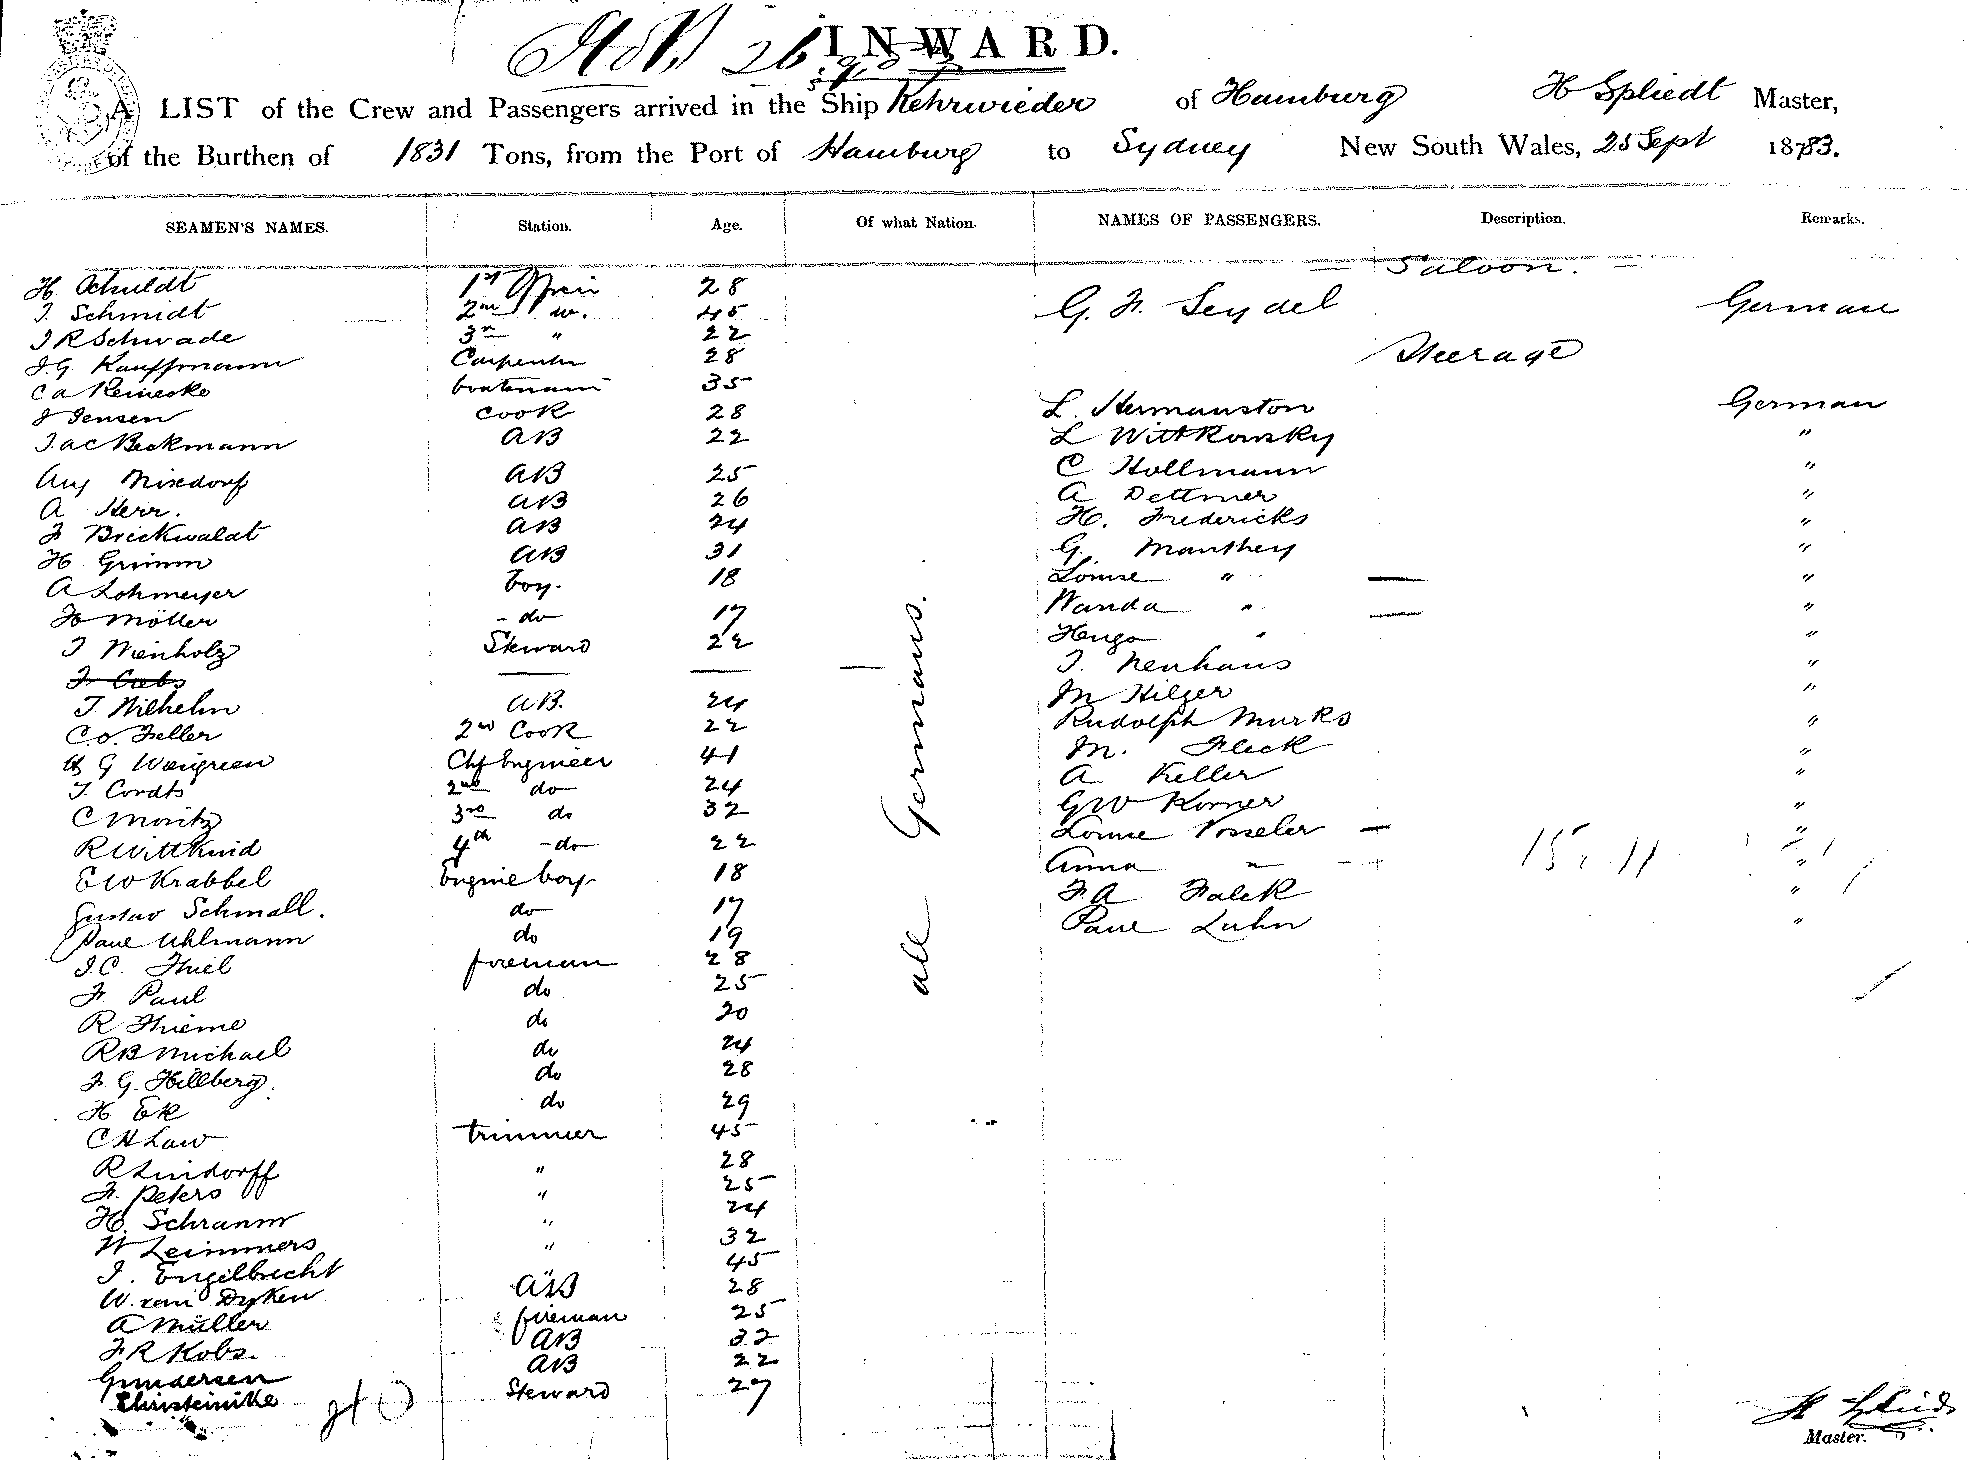 INWARD.
A LIST of the Crew and Passengers arrived in the Ship Kehrwieder of Hamburg H Spliedt Master,
of the Burthen of 1831 Tons, from the Port of Hamburg to Sydney New South Wales, 25 Sept 1883.
SEAMEN'S NAMES. Station. Age. Of what Nation. NAMES OF PASSENGERS. Description. Remarks.
Saloon.
H. Schuldt 1st 28
J. Schmidt 2nd 45 G. F. Seydel German
J R Schwade 3rd " 22
J. G. Kauffmann Carpenter 28 Steerage
C A Reinecke boatsmann 35
J Jensen Cook 28 L. Hermanston German
Jac Beckmann AB 22 L Wittkowsky "
Aug Nixdorf AB 25 C Hollmann "
A Herr. AB 26 A Dettmer "
F Brickwaldt AB 24 H. Fredericks "
H Grimm AB 31 G. Manthey "
A Lohmeyer boy. 18 Louise " — "
H Möller - do 17 Wanda " — "
J Wienholz Steward 22 Hugo " "
J. Neuhaus "
J. Wilhelm AB. 24 M Hilger "
C. O. Feller 2nd Cook 22 Rudolph Murks "
G Weigreen Chf Engineer 41 M. Fleck "
J. Cordts 2nd do 24 A Keller "
C Moritz 3rd do 32 G W Korner "
R Wittkind 4th - do 22 Louise Vosseler — "
E W Krabbel Engine boy 18 Anna " — "
Gustav Schmall. do 17 F A Falck "
Paul Uhlmann do 19 Paul Luhn "
J. C. Thiel fireman 28
F. Paul do 25
R Thieme do 20
R B Michael do 24
F. G. Hillberg. do 28
H Ek do 29
C H Law trimmer 45
R Lindorff " 28
F. Peters " 25
H. Schramm " 24
W Leimmers " 32
J. Engelbrecht 45
W. van Dyken AB 28
A Müller fireman 25
F R Kobs. AB 32
Gundersen AB 22
Christeinike Steward 27
all Germans.
H Spliedt
Master.